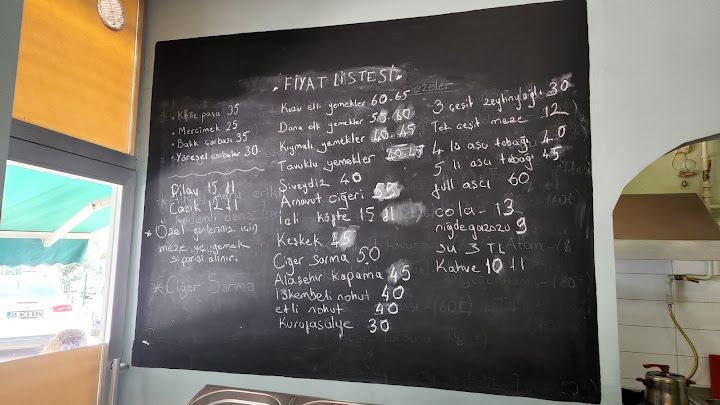 FİYAT LİSTESİ
• Kelle paça 35
• Mercimek 25
• Balık çorbası 35
• Yöresel çorbalar 30
Pilav 15 tl
Cacık 12 tl
* Özel günleriniz için
meze ve yemek
siparişi alınır.
* Ciğer Sarma
Kuzu etli yemekler 60-65
Dana etli yemekler 55-60
Kıymalı yemekler 40-45
Tavuklu yemekler 40-45
Şiveydiz 40
Arnavut ciğeri 55
İçli köfte 15 tl
Keşkek 45
Ciğer sarma 50
Alaşehir kapama 45
İşkembeli nohut 40
etli nohut 40
Kurufasülye 30
ezeler
3 çeşit zeytinyağlı 30
Tek çeşit meze 12
4 lü aşçı tabağı 40
5 li aşçı tabağı 45
full aşçı 60
cola - 13
niğde gazozu 9
su 3 TL
Kahve 10 tl